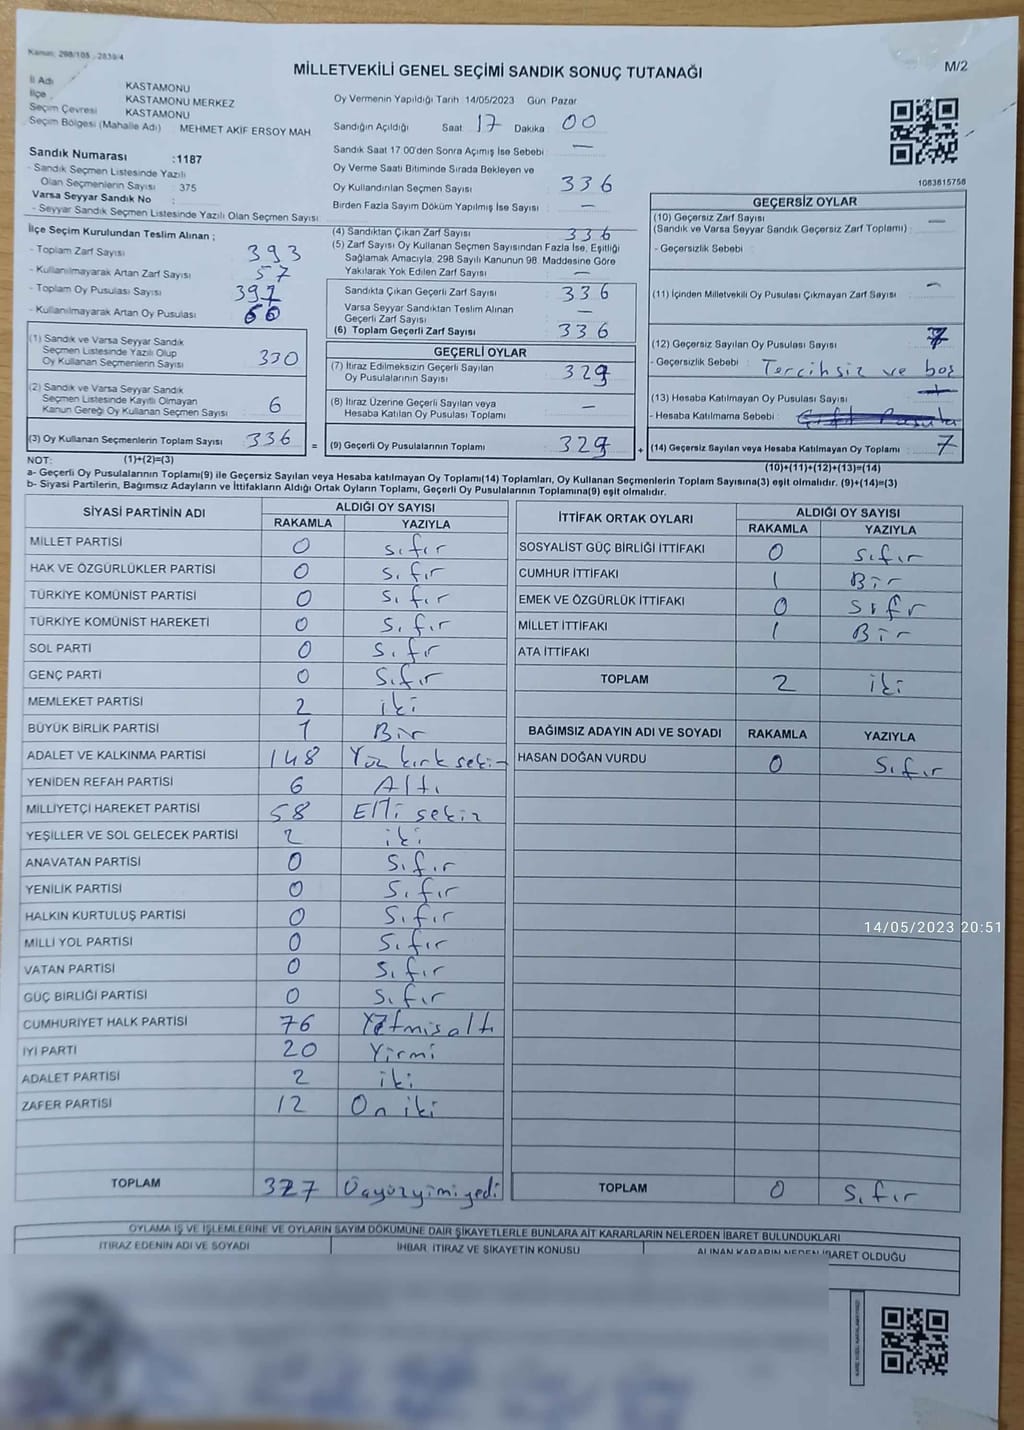 Kanun: 298/105 , 2839/4
MİLLETVEKİLİ GENEL SEÇİMİ SANDIK SONUÇ TUTANAĞI
M/2
İl Adı KASTAMONU
İlçe KASTAMONU MERKEZ
Seçim Çevresi KASTAMONU
Seçim Bölgesi (Mahalle Adı) MEHMET AKİF ERSOY MAH
Oy Vermenin Yapıldığı Tarih 14/05/2023 Gün Pazar
Sandığın Açıldığı Saat 17 Dakika 00
Sandık Saat 17:00'den Sonra Açımış İse Sebebi —
Oy Verme Saati Bitiminde Sırada Bekleyen ve
Oy Kullandırılan Seçmen Sayısı 336
Birden Fazla Sayım Döküm Yapılmış İse Sayısı —
1083615756
Sandık Numarası :1187
- Sandık Seçmen Listesinde Yazılı
Olan Seçmenlerin Sayısı : 375
Varsa Seyyar Sandık No :
- Seyyar Sandık Seçmen Listesinde Yazılı Olan Seçmen Sayısı
İlçe Seçim Kurulundan Teslim Alınan ;
- Toplam Zarf Sayısı 393
- Kullanılmayarak Artan Zarf Sayısı 57
- Toplam Oy Pusulası Sayısı
- Kullanılmayarak Artan Oy Pusulası
(1) Sandık ve Varsa Seyyar Sandık
Seçmen Listesinde Yazılı Olup
Oy Kullanan Seçmenlerin Sayısı 330
(2) Sandık ve Varsa Seyyar Sandık
Seçmen Listesinde Kayıtlı Olmayan
Kanun Gereği Oy Kullanan Seçmen Sayısı : 6
(3) Oy Kullanan Seçmenlerin Toplam Sayısı 336
(4) Sandıktan Çıkan Zarf Sayısı 336
(5) Zarf Sayısı Oy Kullanan Seçmen Sayısından Fazla İse, Eşitliği
Sağlamak Amacıyla, 298 Sayılı Kanunun 98. Maddesine Göre
Yakılarak Yok Edilen Zarf Sayısı —
Sandıkta Çıkan Geçerli Zarf Sayısı : 336
Varsa Seyyar Sandıktan Teslim Alınan
Geçerli Zarf Sayısı —
(6) Toplam Geçerli Zarf Sayısı : 336
GEÇERLİ OYLAR
(7) İtiraz Edilmeksizin Geçerli Sayılan
Oy Pusulalarının Sayısı : 329
(8) İtiraz Üzerine Geçerli Sayılan veya
Hesaba Katılan Oy Pusulası Toplamı : —
= (9) Geçerli Oy Pusulalarının Toplamı : 329
GEÇERSİZ OYLAR
(10) Geçersiz Zarf Sayısı —
(Sandık ve Varsa Seyyar Sandık Geçersiz Zarf Toplamı) :
- Geçersizlik Sebebi :
(11) İçinden Milletvekili Oy Pusulası Çıkmayan Zarf Sayısı : —
(12) Geçersiz Sayılan Oy Pusulası Sayısı : 7
- Geçersizlik Sebebi : Tercihsiz ve boş
(13) Hesaba Katılmayan Oy Pusulası Sayısı :
- Hesaba Katılmama Sebebi :
+ (14) Geçersiz Sayılan veya Hesaba Katılmayan Oy Toplamı : 7
NOT: (1)+(2)=(3)
(10)+(11)+(12)+(13)=(14)
a- Geçerli Oy Pusulalarının Toplamı(9) ile Geçersiz Sayılan veya Hesaba katılmayan Oy Toplamı(14) Toplamları, Oy Kullanan Seçmenlerin Toplam Sayısına(3) eşit olmalıdır. (9)+(14)=(3)
b- Siyasi Partilerin, Bağımsız Adayların ve İttifakların Aldığı Ortak Oyların Toplamı, Geçerli Oy Pusulalarının Toplamına(9) eşit olmalıdır.
SİYASİ PARTİNİN ADI ALDIĞI OY SAYISI
RAKAMLA YAZIYLA
MİLLET PARTİSİ 0 sıfır
HAK VE ÖZGÜRLÜKLER PARTİSİ 0 sıfır
TÜRKİYE KOMÜNİST PARTİSİ 0 sıfır
TÜRKİYE KOMÜNİST HAREKETİ 0 sıfır
SOL PARTİ 0 sıfır
GENÇ PARTİ 0 sıfır
MEMLEKET PARTİSİ 2 iki
BÜYÜK BİRLİK PARTİSİ 1 Bir
ADALET VE KALKINMA PARTİSİ 148 Yüz kırk sekiz
YENİDEN REFAH PARTİSİ 6 Altı
MİLLİYETÇİ HAREKET PARTİSİ 58 Elli sekiz
YEŞİLLER VE SOL GELECEK PARTİSİ 2 iki
ANAVATAN PARTİSİ 0 sıfır
YENİLİK PARTİSİ 0 sıfır
HALKIN KURTULUŞ PARTİSİ 0 sıfır
MİLLİ YOL PARTİSİ 0 sıfır
VATAN PARTİSİ 0 sıfır
GÜÇ BİRLİĞİ PARTİSİ 0 sıfır
CUMHURİYET HALK PARTİSİ 76 Yetmiş altı
İYİ PARTİ 20 Yirmi
ADALET PARTİSİ 2 iki
ZAFER PARTİSİ 12 On iki
TOPLAM 327 Üçyüzyirmiyedi
İTTİFAK ORTAK OYLARI ALDIĞI OY SAYISI
RAKAMLA YAZIYLA
SOSYALİST GÜÇ BİRLİĞİ İTTİFAKI 0 sıfır
CUMHUR İTTİFAKI 1 Bir
EMEK VE ÖZGÜRLÜK İTTİFAKI 0 sıfır
MİLLET İTTİFAKI 1 Bir
ATA İTTİFAKI
TOPLAM 2 iki
BAĞIMSIZ ADAYIN ADI VE SOYADI RAKAMLA YAZIYLA
HASAN DOĞAN VURDU 0 sıfır
14/05/2023 20:51
TOPLAM 0 sıfır
OYLAMA İŞ VE İŞLEMLERİNE VE OYLARIN SAYIM DÖKÜMÜNE DAİR ŞİKAYETLERLE BUNLARA AİT KARARLARIN NELERDEN İBARET BULUNDUKLARI
İTİRAZ EDENİN ADI VE SOYADI İHBAR, İTİRAZ VE ŞİKAYETİN KONUSU ALINAN KARARIN NEDEN İBARET OLDUĞU